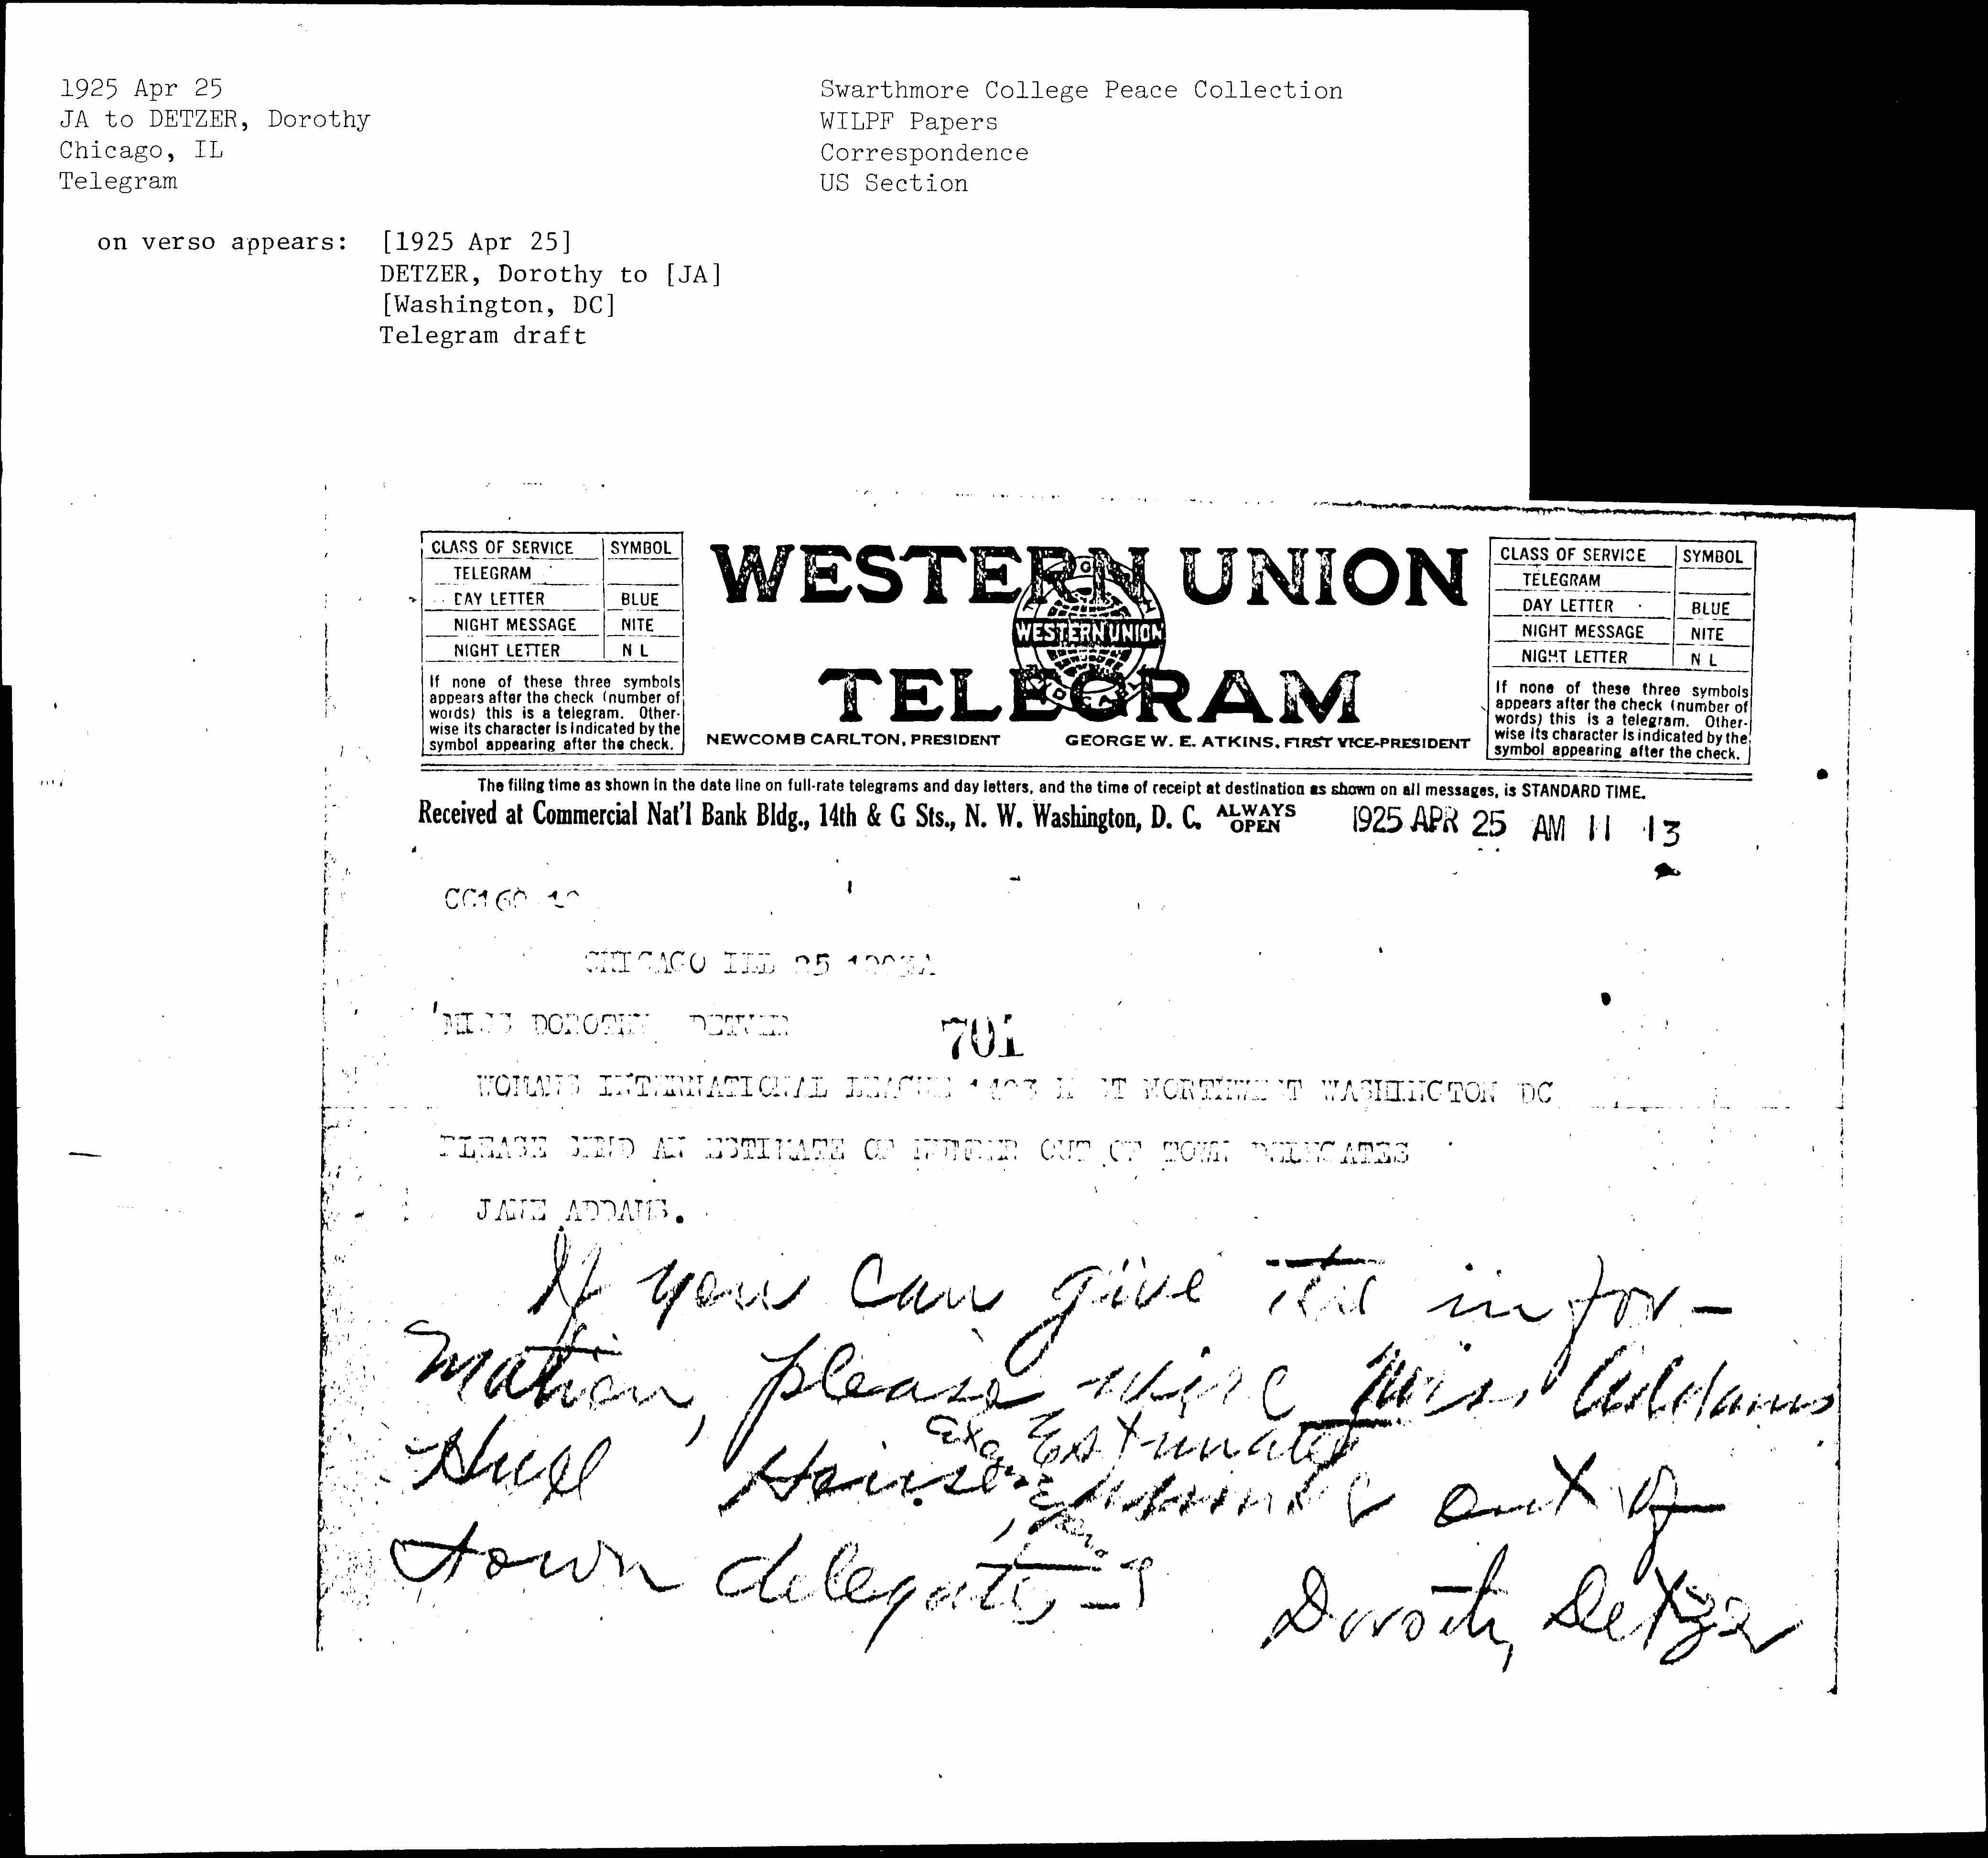 1925 Apr 25
JA to DETZER, Dorothy
Chicago, IL
Telegram
Swarthmore College Peace Collection
WILPF Papers
Correspondence
US Section
on verso appears: [1925 Apr 25]
DETZER, Dorothy to [JA]
[Washington, DC]
Telegram draft
CLASS OF SERVICE SYMBOL
TELEGRAM
DAY LETTER BLUE
NIGHT MESSAGE NITE
NIGHT LETTER N L
If none of these three symbols
appears after the check (number of
words) this is a telegram. Other-
wise its character is indicated by the
symbol appearing after the check.
WESTERN UNION
WESTERN UNION
TELEGRAM
NEWCOMB CARLTON, PRESIDENT GEORGE W. E. ATKINS, FIRST VICE-PRESIDENT
CLASS OF SERVICE SYMBOL
TELEGRAM
DAY LETTER BLUE
NIGHT MESSAGE NITE
NIGHT LETTER N L
If none of these three symbols
appears after the check (number of
words) this is a telegram. Other-
wise its character is indicated by the
symbol appearing after the check.
The filing time as shown in the date line on full-rate telegrams and day letters, and the time of receipt at destination as shown on all messages, is STANDARD TIME.
Received at Commercial Nat'l Bank Bldg., 14th & G Sts., N. W. Washington, D. C. ALWAYS OPEN 1925 APR 25 AM 11 13
CHICAGO ILL 25
MISS DOROTHY DETZER
701
WOMANS INTERNATIONAL LEAGUE ST NORTHWEST WASHINGTON DC
PLEASE SEND AN ESTIMATE OF NUMBER OUT OF TOWN DELEGATES
JANE ADDAMS.
If you can give the infor-
mation, please wire Miss Addams
Hull House
Estimate
out of
town delegates
Dorothy Detzer